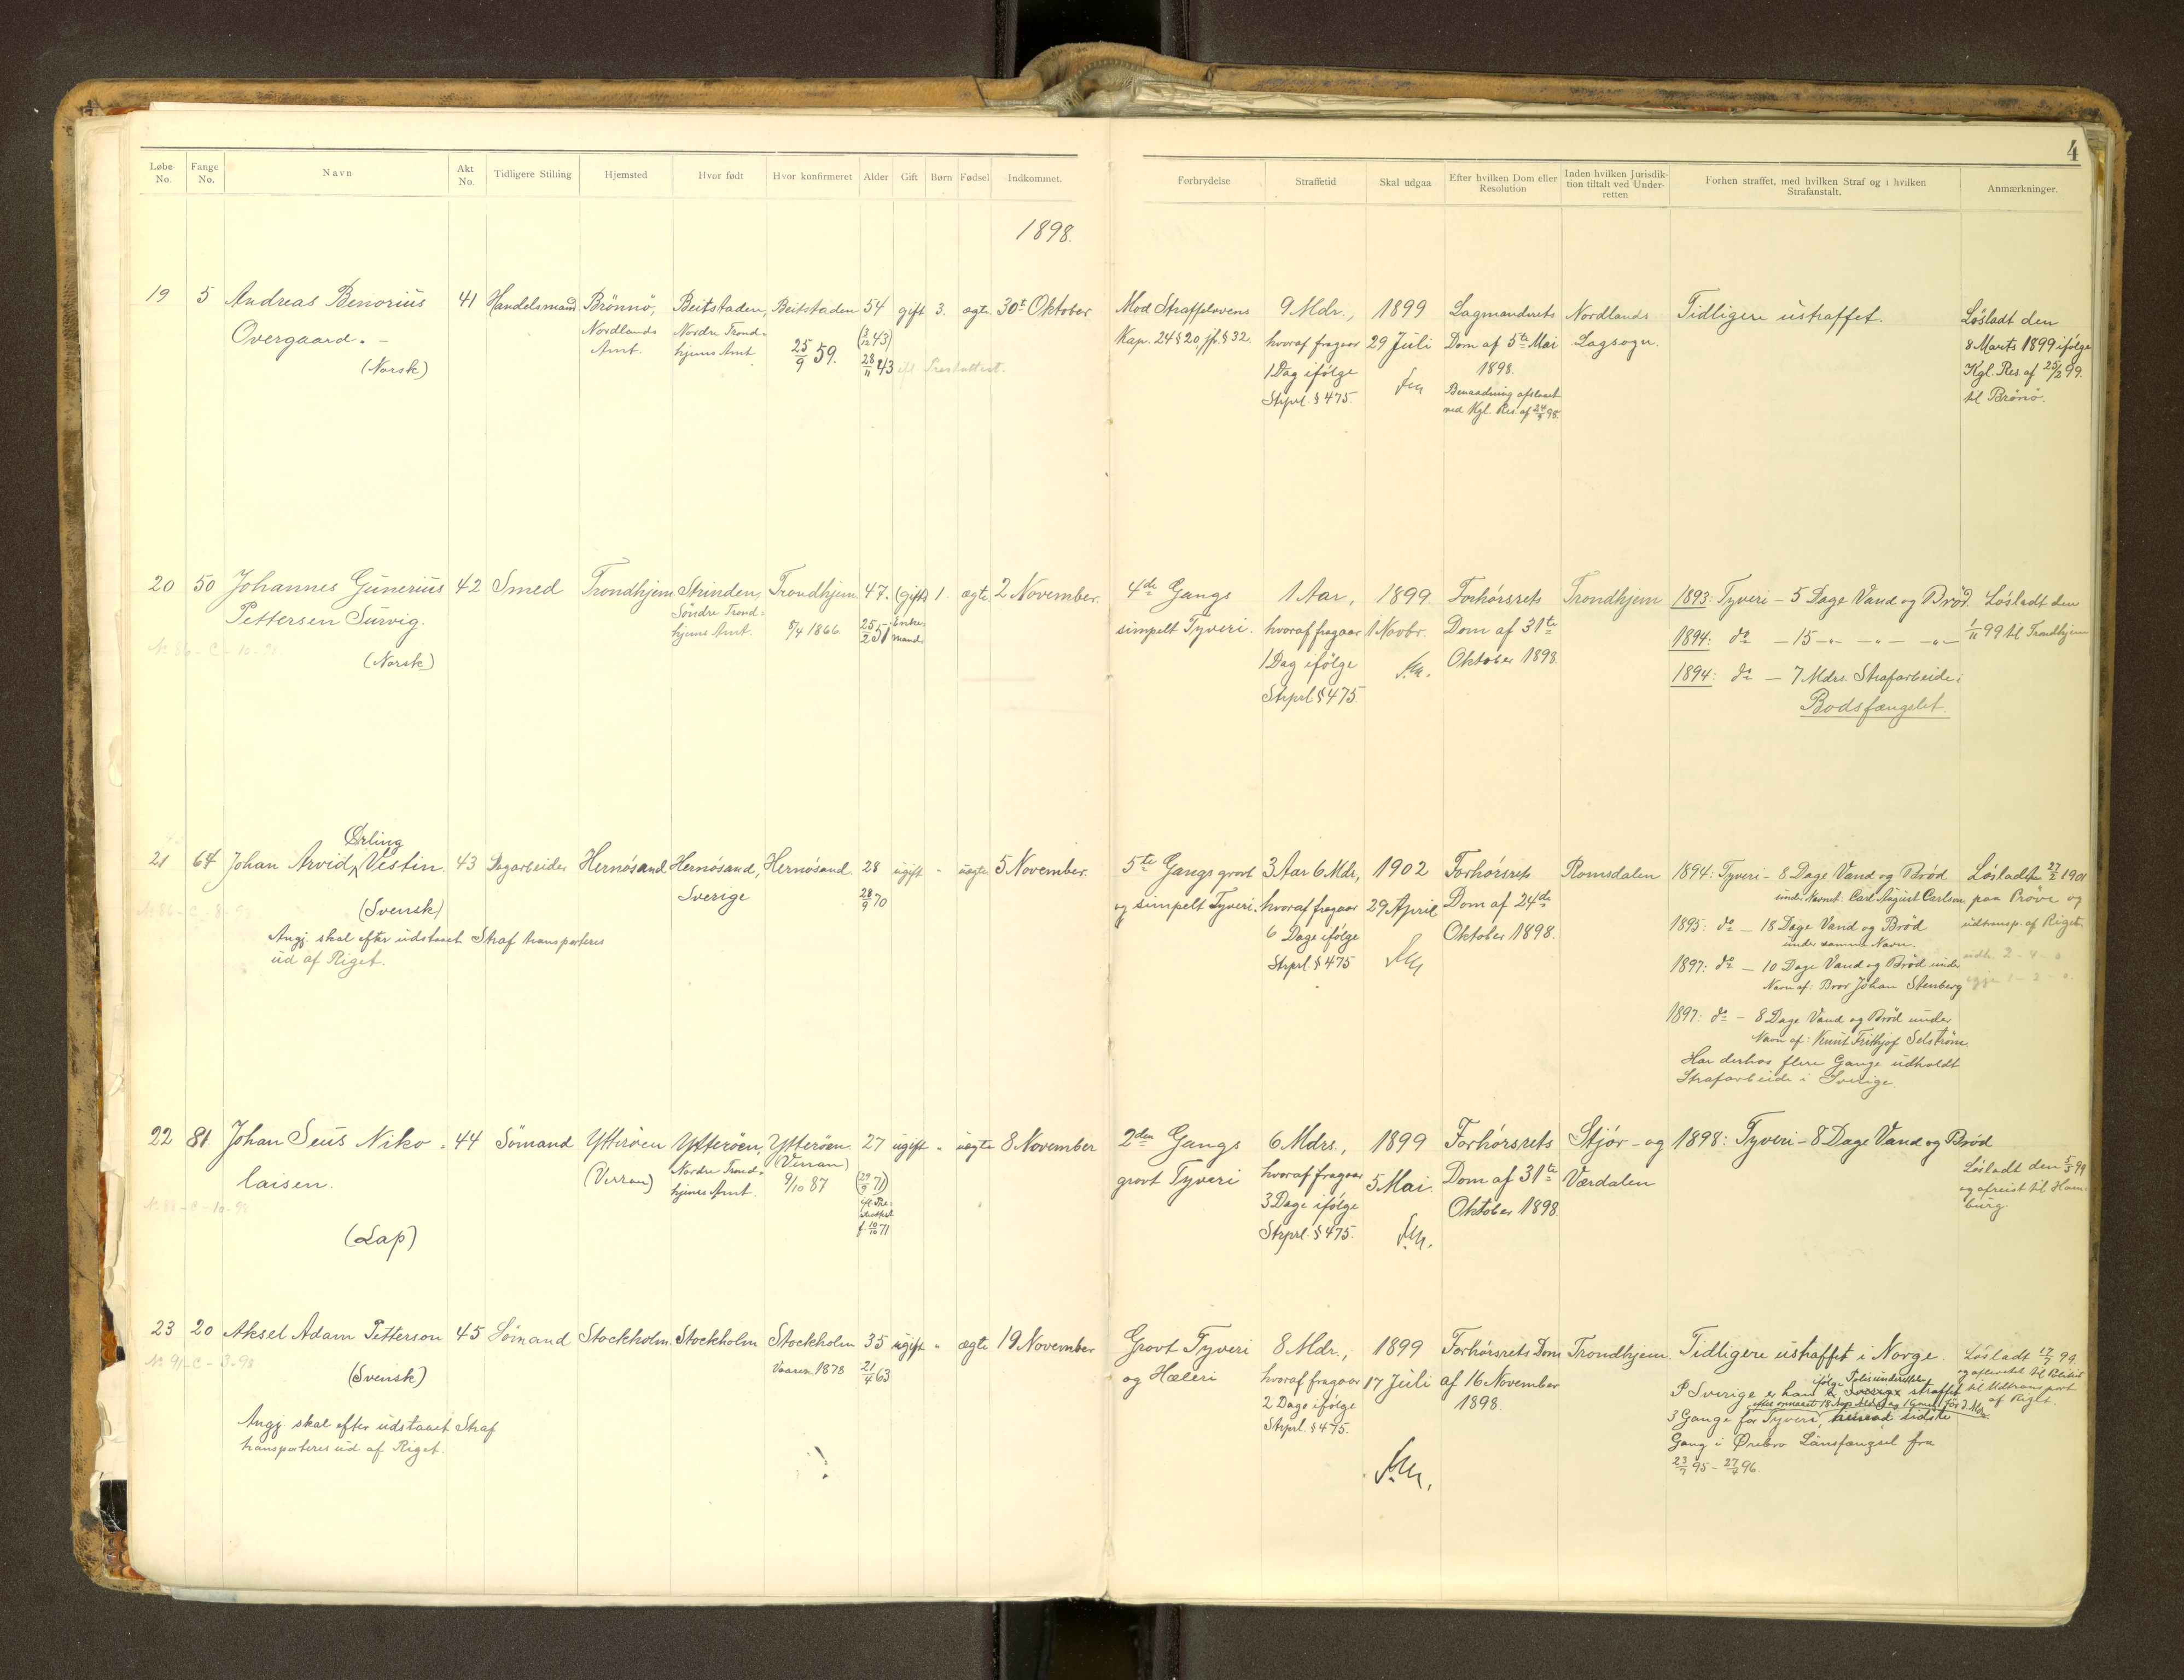 4
Løbe-No. Fange No. Navn Akt No. Tidligere Stilling Hjemsted Hvor født Hvor konfirmeret Alder Gift Børn Fødsel Indkommet.
Forbrydelse Straffetid Skal udgaa Efter hvilken Dom eller Resolution Inden hvilken Jurisdiktion tiltalt ved Underretten Forhen straffet, med hvilken Straf og i hvilken Strafanstalt. Anmærkninger.
1898.
19 5 Andreas Benorius 41 Handelsmand Brönnö, Beitstaden, Beitstaden 54 gift 3. ægte 30t Oktober
Overgaard. - Nordlands Nordre Trond- 25/9 59. (3/12 43)
(Norsk) Amt. hjems Amt 28/11 43 efl Prestattest.
Mod Straffelovens 9 Mdr., 1899 Lagmandsrets Nordlands Tidligere ustraffet. Lösladt den
Kap. 24 § 20, jfr. § 32. hvoraf fragaar 29 Juli Dom af 5te Mai Lagsogn. 8 Marts 1899 ifölge
1 Dag ifölge 1898. Kgl. Res. af 25/2 99.
Strprl. § 475. Benaadning afslaaet til Brönö.
ved Kgl. Res. af 24/9 98.
20 50 Johannes Gunerius 42 Smed Trondhjem Strinden, Trondhjem 47. (gift) 1. ægte 2 November.
Pettersen Survig. Söndre Trond- 8/4 1866. 25/2 51 Enke-
No 86 - C - 10 - 98. hjems Amt. mand.
(Norsk)
4de Gangs 1 Aar, 1899 Forhörsrets Trondhjem 1893: Tyveri - 5 Dage Vand og Bröd. Lösladt den
simpelt Tyveri. hvoraf fragaar 1 Novbr. Dom af 31te 1894: do - 15 -"- -"- -"- 1/11 99 til Trondhjem
1 Dag ifölge Oktober 1898. 1894: do - 7 Mdrs. Strafarbeide i
Strprl § 475. Bodsfængslet.
Ørling
21 64 Johan Arvid Vestin. 43 Dagarbeider Hernösand Hernösand, Hernösand. 28 ugift " uægte 5 November.
(Svensk) Sverige 28/9 70
Angj. skal efter udstaaet Straf transporteres
ud af Riget.
5te Gangs grovt 3 Aar 6 Mdr, 1902 Forhörsrets Romsdalen 1894: Tyveri - 8 Dage Vand og Bröd Lösladt 27/2 1901
og simpelt Tyveri. hvoraf fragaar 29 April Dom af 24de under Navnet: Carl August Carlson paa Pröve og
6 Dage ifölge Oktober 1898. 1895: do - 18 Dage Vand og Bröd udtransp. af Riget.
Strprl. § 475 under samme Navn.
1897: do - 10 Dage Vand og Bröd under
Navn af: Bror Johan Stenberg
1897: do - 8 Dage Vand og Bröd under
Navn af: Knut Frithjof Selström.
Har derhos flere Gange udholdt
Strafarbeide i Sverige.
22 81 Johan Seus Niko- 44 Sömand Ytteröen Ytteröen, Ytteröen. 27 ugift " uægte 8 November
laisen. (Verran) Nordre Trond- (Verran) (29/9 71)
No 88 - C - 10 - 98 hjems Amt. 9/10 87 efl Pre-
stattest
f. 10/10 71
(Lap)
2den Gangs 6 Mdrs., 1899 Forhörsrets Stjör- og 1898: Tyveri - 8 Dage Vand og Bröd
grovt Tyveri hvoraf fragaar 5 Mai. Dom af 31te Værdalen Lösladt den 5/5 99
3 Dage ifölge Oktober 1898. og afreist til Ham-
Strprl. § 475. burg.
23 20 Aksel Adam Petterson 45 Sömand Stockholm. Stockholm Stockholm 35 ugift " ægte 19 November
No 91 - C - 3 - 98 Vaaren 1878 21/4 63
(Svensk)
Angj. skal efter udstaaet Straf
transporteres ud af Riget.
Grovt Tyveri 8 Mdr., 1899 Forhörsrets Dom Trondhjem. Tidligere ustraffet i Norge. Lösladt 17/7 99.
og Hæleri hvoraf fragaar 17 Juli af 16 November og afleveret til Politiet
2 Dage ifölge 1898. I Sverige er han ifölge straffet til Udtransport
Strprl. § 475. 3 Gange for Tyveri, sidste af Riget.
Gang i Örebro Länsfängsel fra
23/7 95 - 27/4 96.